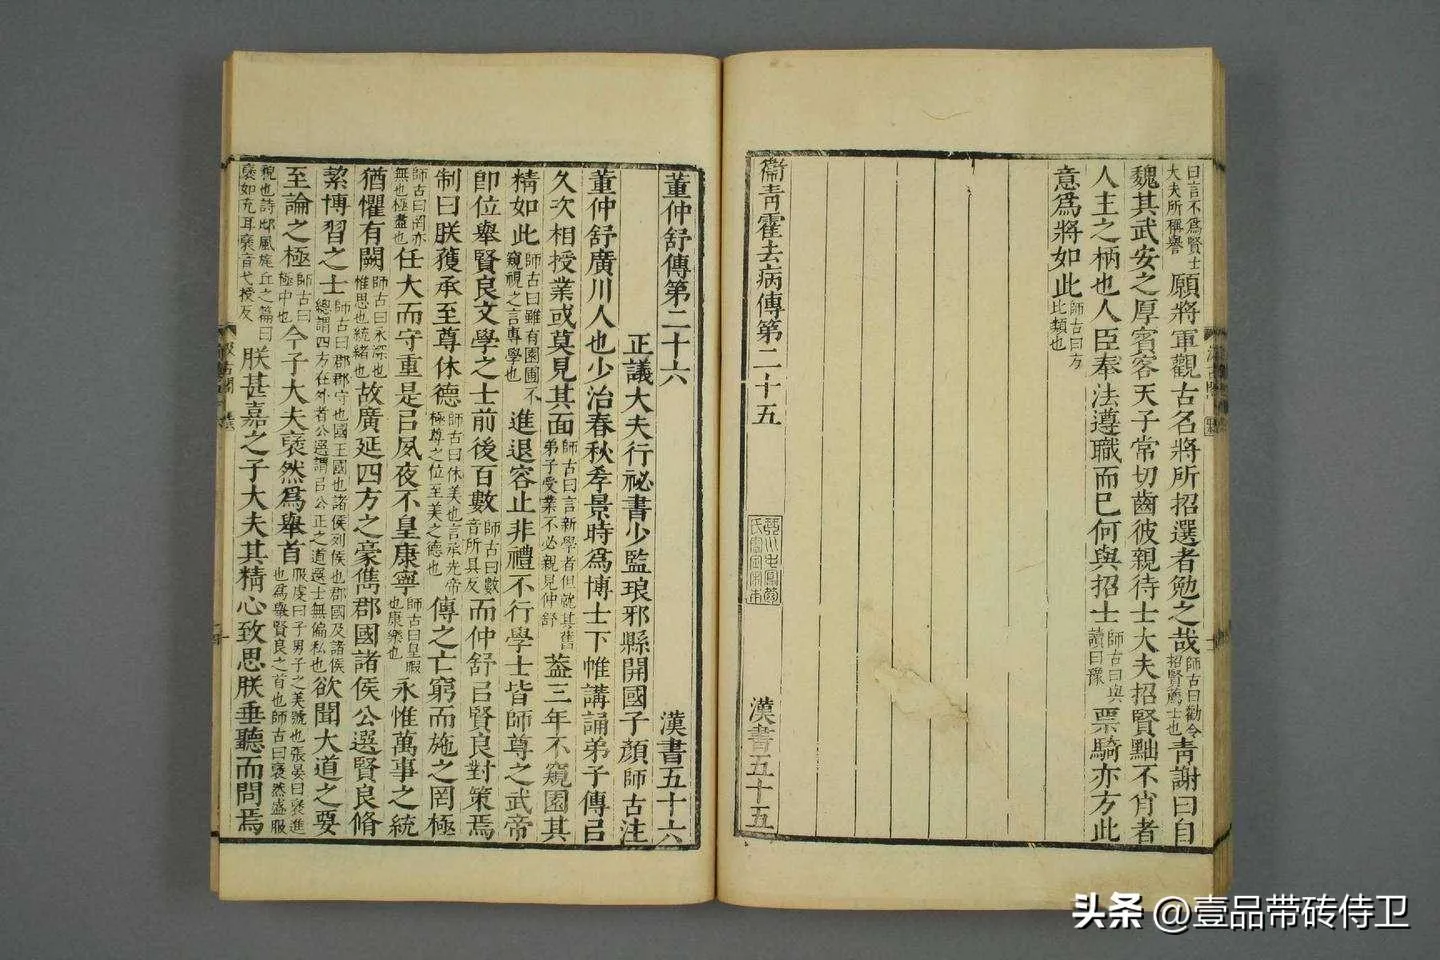 曰言不爲賢士大夫所稱譽願將軍觀古名將所招選者勉之哉師古曰勸令招賢薦士也青謝曰自
魏其武安之厚賓客天子常切齒彼親待士大夫招賢黜不肖者
人主之柄也人臣奉法遵職而已何與招士師古曰與讀曰豫票騎亦方此
意爲將如此師古曰方比類也
衞青霍去病傳第二十五 漢書五十五
琴川毛鳳苞氏審定宋本
董仲舒傳第二十六 漢書五十六
正議大夫行祕書少監琅邪縣開國子顏師古注
董仲舒廣川人也少治春秋孝景時爲博士下帷講誦弟子傳㠯
久次相授業或莫見其面師古曰言新學者但就其舊弟子受業不必親見仲舒蓋三年不窺園其
精如此師古曰雖有園圃不窺視之言專學也進退容止非禮不行學士皆師尊之武帝
卽位舉賢良文學之士前後百數師古曰數音所具反而仲舒㠯賢良對策焉
制曰朕獲承至尊休德師古曰休美也言承先帝極尊之位至美之德也傳之亡窮而施之罔極
師古曰罔亦無也極盡也任大而守重是㠯夙夜不皇康寧師古曰皇暇也康樂也永惟萬事之統
猶懼有闕師古曰永深也惟思也統緒也故廣延四方之豪儁郡國諸侯公選賢良脩
絜博習之士師古曰郡郡守也國王國也諸侯列侯也郡國及諸侯總謂四方在外者公選謂㠯公正之道選士無偏私也欲聞大道之要
至論之極師古曰極中也今子大夫褎然爲舉首服虔曰子男子之美號也張晏曰褎進也爲舉賢良之首也師古曰褎然盛服
貌也詩邶風旄丘之篇曰褎如充耳褎音弋授反朕甚嘉之子大夫其精心致思朕垂聽而問焉
头条 @壹品带砖侍卫